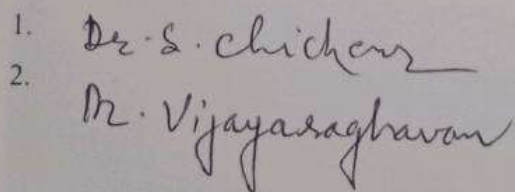 1. Dr. S. Chickerur
2. Dr. Vijayaraghavan